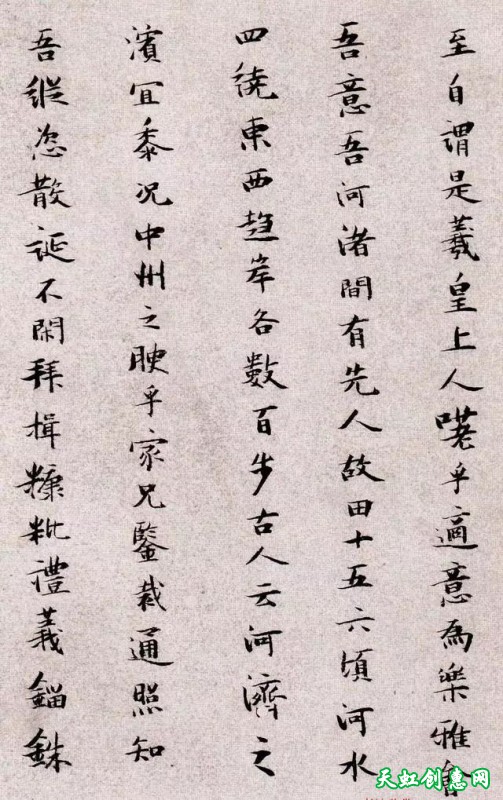 至自謂是羲皇上人嗟乎適意為樂雅會
吾意吾河渚間有先人故田十五六頃河水
四繞東西趍岸各數百步古人云河濟之
濱宜黍况中州之腴乎家兄鑒裁通照知
吾縱恣散誕不閑拜揖糠粃禮義錙銖
天虹创意网